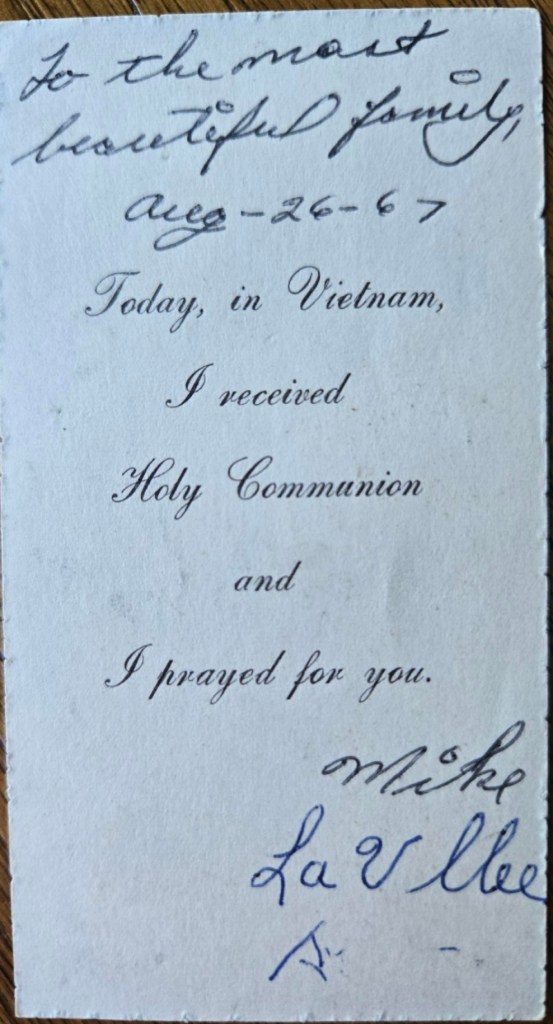 To the most
beautiful family,
Aug-26-67
Today, in Vietnam,
I received
Holy Communion
and
I prayed for you.
Mike